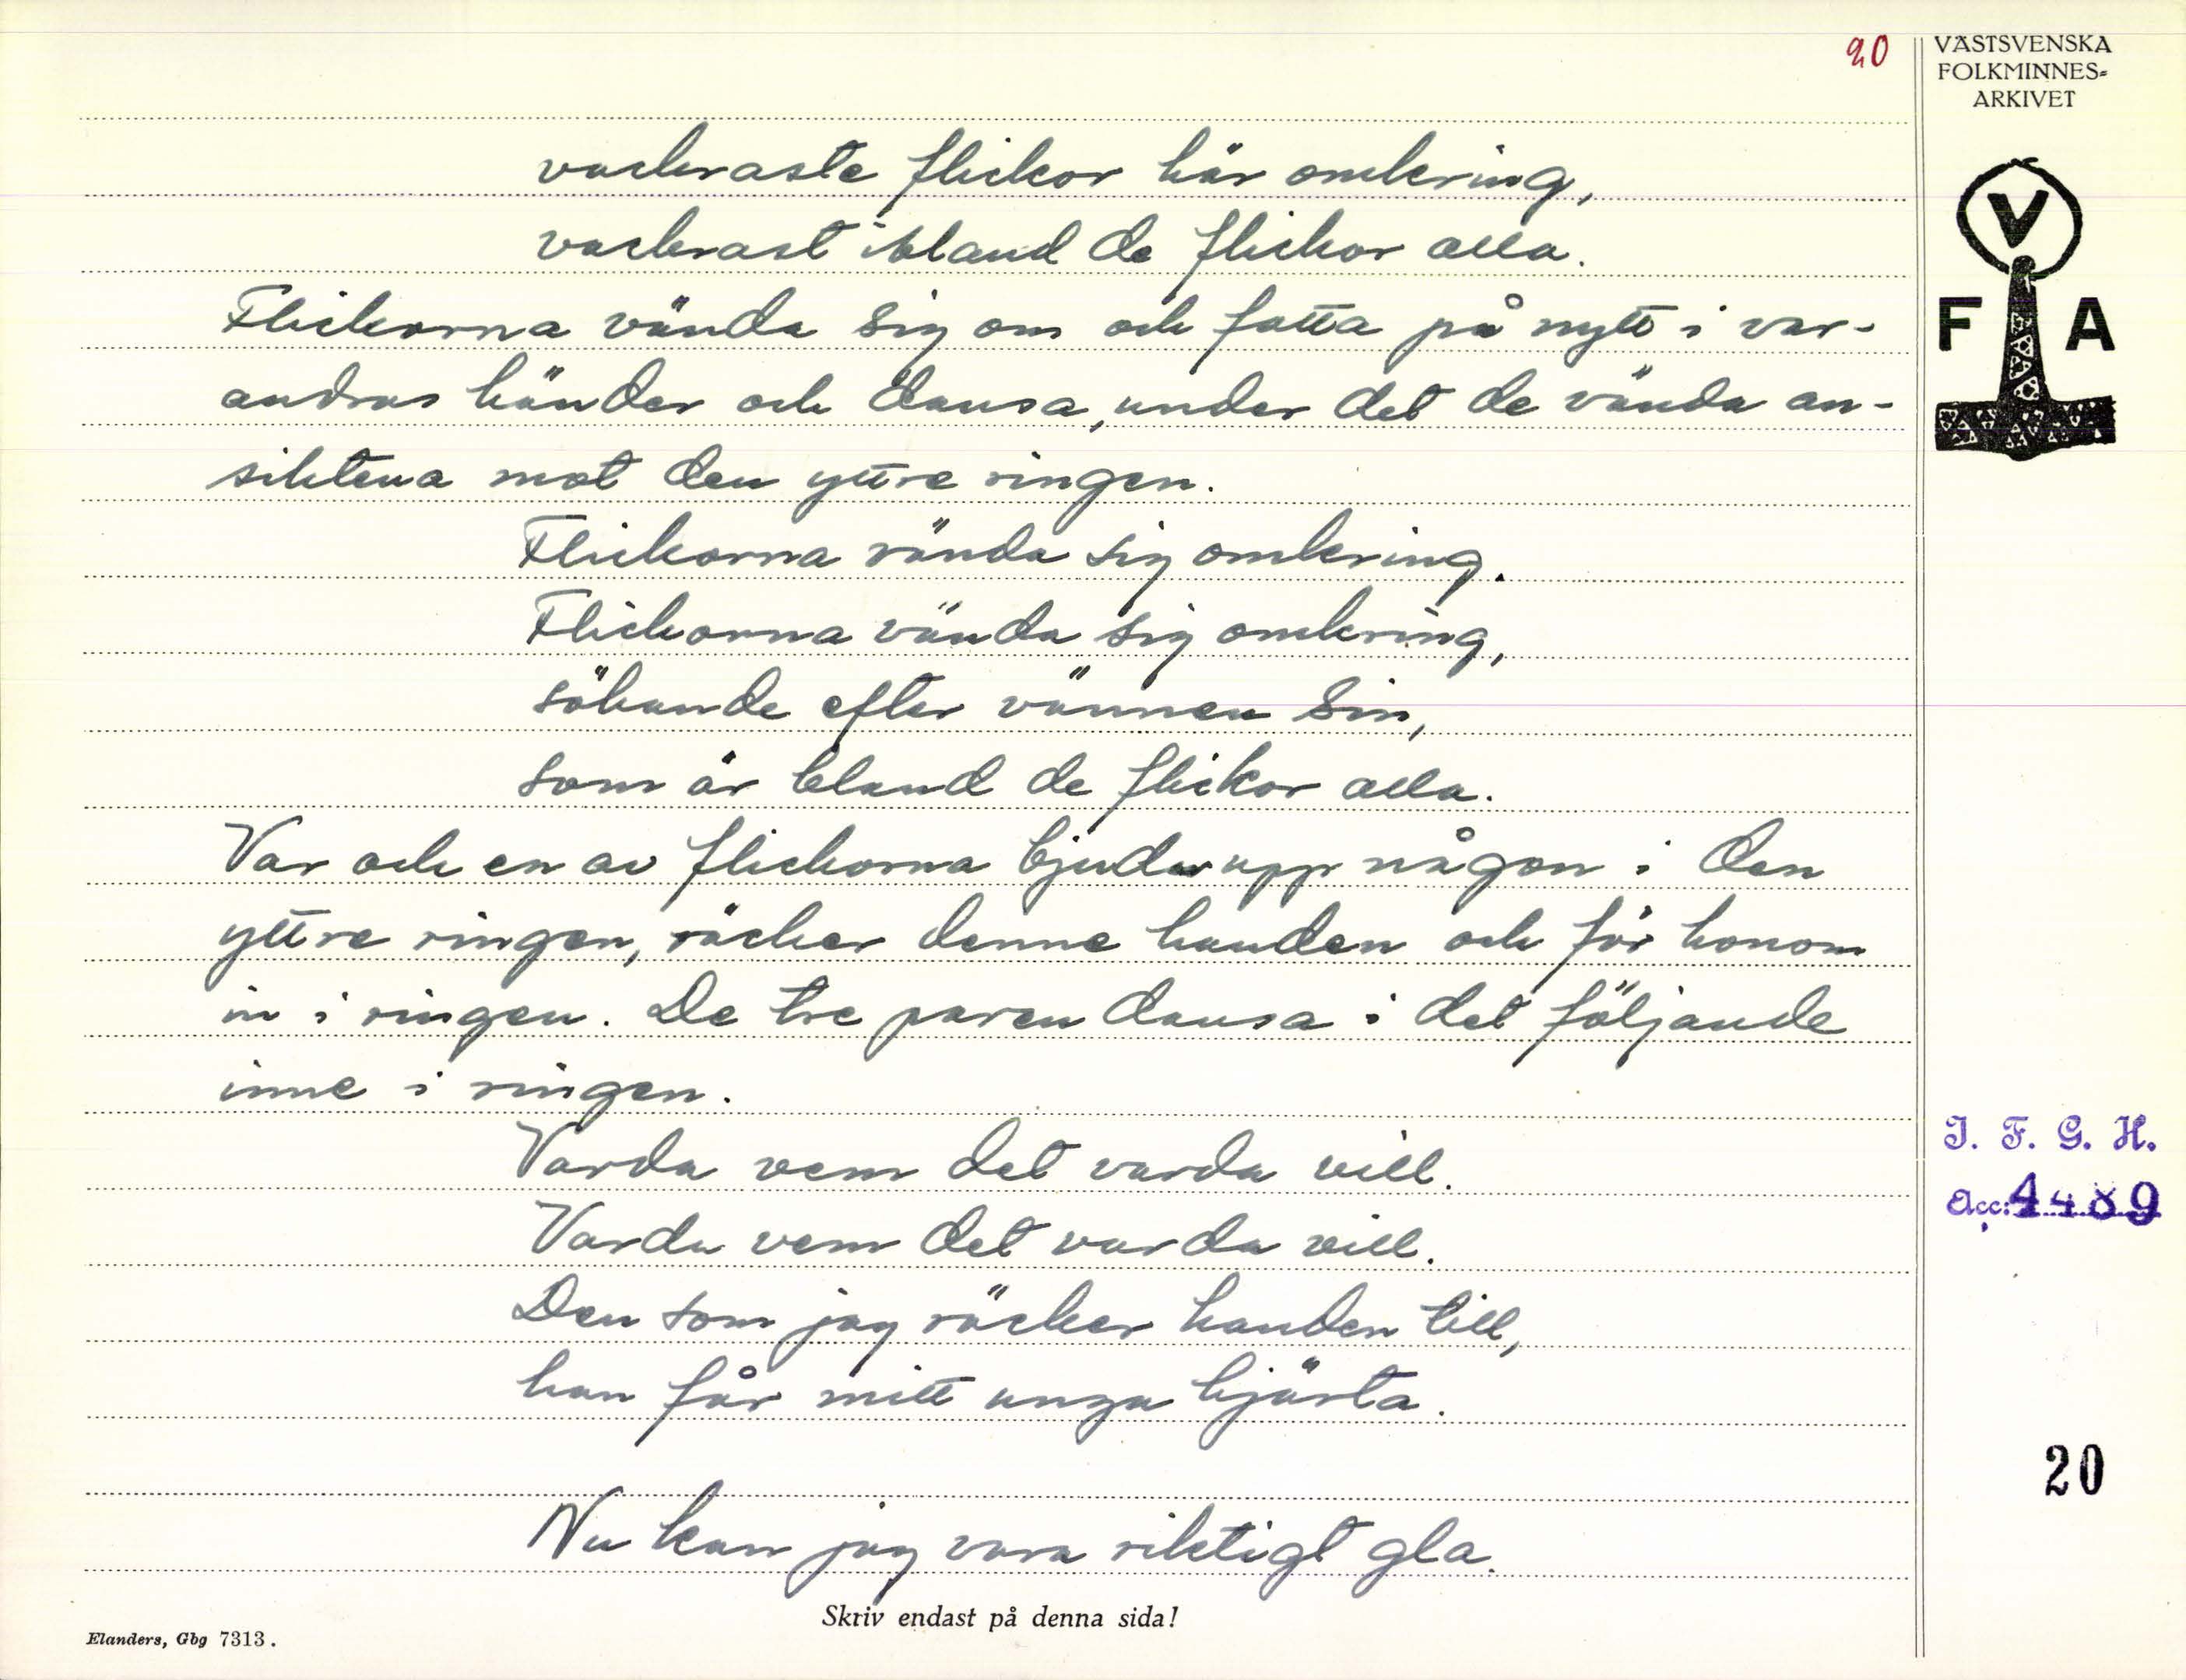 20
VÄSTSVENSKA
FOLKMINNES-
ARKIVET
V
F A
vackraste flickor här omkring,
vackrast ibland de flickor alla.
Flickorna vända sig om och fatta på nytt i var-
andras händer och dansa, under det de vända an-
siktena mot den yttre ringen.
Flickorna vända sig omkring.
Flickorna vända sig omkring,
sökande efter vännen sin,
som är bland de flickor alla.
Var och en av flickorna bjuder upp någon i den
yttre ringen, räcker denne handen och för honom
in i ringen. De tre paren dansa i det följande
inne i ringen.
Varda vem det varda vill.
Varda vem det varda vill.
Den som jag räcker handen till,
han får mitt unga hjärta.
Nu kan jag vara riktigt gla.
I. F. G. H.
Acc: 4489
20
Skriv endast på denna sida!
Elanders, Gbg 7313.